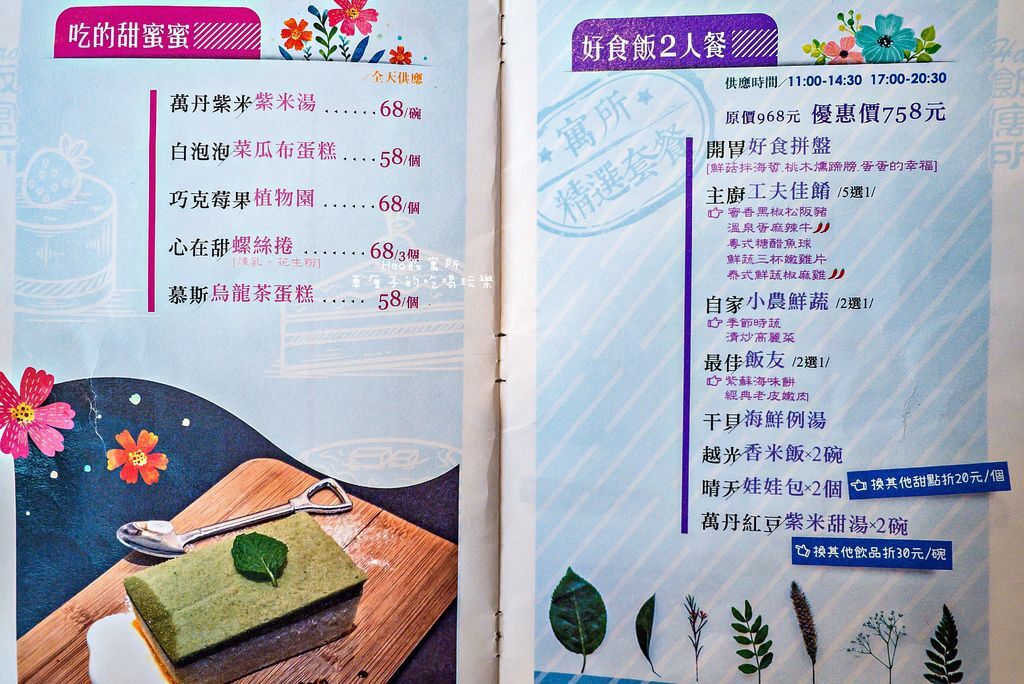 吃的甜蜜蜜
全天供應
萬丹紫米紫米湯......68/碗
白泡泡菜瓜布蛋糕....58/個
巧克莓果植物園......68/個
心在甜螺絲捲......68/3個
[煉乳、花生粉]
慕斯烏龍茶蛋糕....58/個
Hao飯寓所
車厘子的吃喝玩樂
好食飯2人餐
供應時間/11:00-14:30 17:00-20:30
原價968元 優惠價758元
寓所
精選套餐
開胃好食拼盤
[鮮菇拌海蜇.桃木燻蹄膀.蛋蛋的幸福]
主廚工夫佳餚 /5選1/
蜜香黑椒松阪豬
溫泉蛋麻辣牛
粵式糖醋魚球
鮮蔬三杯嫩雞片
泰式鮮蔬椒麻雞
自家小農鮮蔬 /2選1/
季節時蔬
清炒高麗菜
最佳飯友 /2選1/
紫蘇海味餅
經典老皮嫩肉
干貝海鮮例湯
越光香米飯×2碗
晴天娃娃包×2個
換其他甜點折20元/個
萬丹紅豆紫米甜湯×2碗
換其他飲品折30元/碗